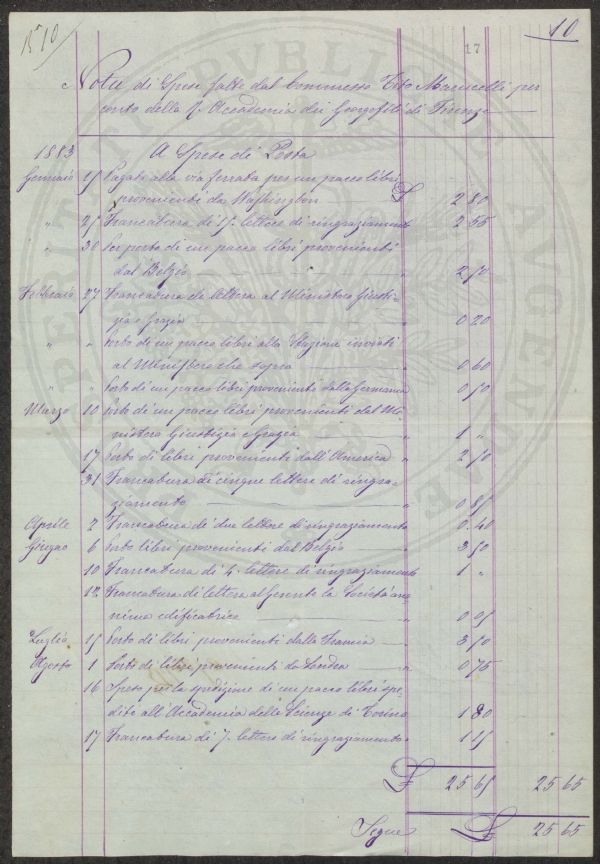 10
17
Note di Spese fatte dal Commesso Tito Marucelli per
conto della R. Accademia dei Georgofili di Firenze
1883 A Spese di Posta
Gennaio 15 Pagato alla via ferrata per un pacco libri
provenienti da Washington £ 2 80
" 25 Francatura di 15 lettere di ringraziamento 2 55
" 30 Per porto di un pacco libri provenienti
dal Belgio " 2 50
Febbraio 27 Francatura di lettera al Ministero Giusti-
zia e Grazia " 0 20
" " Porto di un pacco libri alla Stazione inviati
al Ministero che sopra " 0 60
" " Porto di un pacco libri provenienti dalla Germania 0 50
Marzo 10 Porto di un pacco libri provenienti dal Mi-
nistero Giustizia e Grazia " 1 "
17 Porto di libri provenienti dall'America " 2 50
31 Francatura di cinque lettere di ringra-
ziamento " 0 85
Aprile 7 Francatura di due lettere di ringraziamento 0.40
Giugno 6 Porto libri provenienti dal Belgio " 3 50
10 Francatura di 4. lettere di ringraziamento 1 "
12 Francatura di lettera al Gerente la Società ano-
nima edificatrice " 0 05
Luglio 15 Porto di libri provenienti dalla Francia " 3 50
Agosto 1 Porto di libri provenienti da Londra " 0 75
16 Spese per la spedizione di un pacco libri spe-
dito all'Accademia delle Scienze di Torino 1 80
17 Francatura di 7. lettere di ringraziamento " 1 15
£ 25 65 25 65
Segue £ 25 65